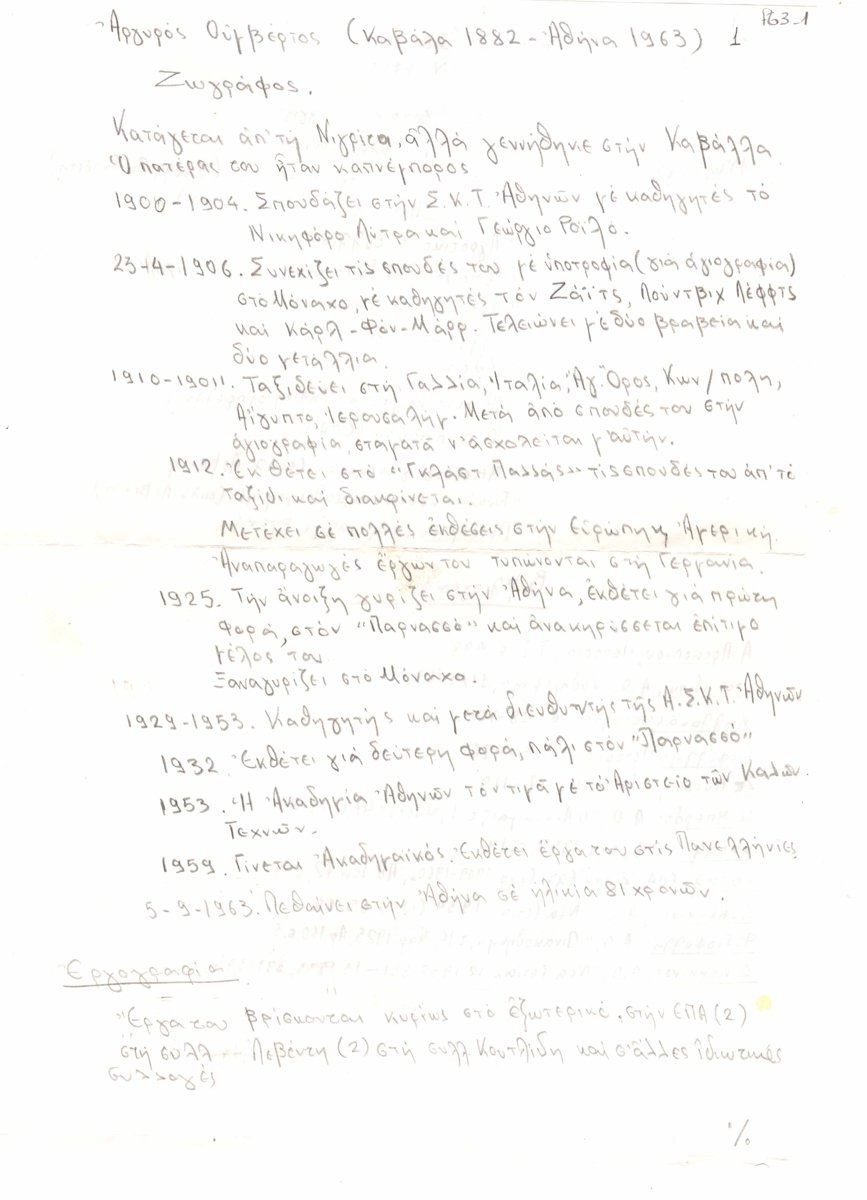 PG3-1
Ἀργυρός Οὐμβέρτος (Καβάλα 1882 - Ἀθήνα 1963) 1
Ζωγράφος.
Κατάγεται ἀπ' τή Νιγρίτα, ἀλλά γεννήθηκε στήν Καβάλλα
Ὁ πατέρας του ἦταν καπνέμπορος
1900-1904. Σπουδάζει στήν Σ.Κ.Τ. Ἀθηνῶν μέ καθηγητές τό
Νικηφόρο Λύτρα καί Γεώργιο Ροϊλό.
23-4-1906. Συνεχίζει τίς σπουδές του μέ ὑποτροφία (γιά ἁγιογραφία)
στό Μόναχο, μέ καθηγητές τόν Ζάϊτς, Λούντβιχ Λέφφτς
καί Κάρλ-Φόν-Μάρρ. Τελειώνει μέ δύο βραβεία καί
δύο μετάλλια.
1910-19011. Ταξιδεύει στή Γαλλία, Ἰταλία, Ἁγ. Ὄρος, Κων/πολη,
Αἴγυπτο, Ἱερουσαλήμ. Μετά ἀπό σπουδές του στήν
ἁγιογραφία, σταματᾶ ν' ἀσχολείται μ' αὐτήν.
1912. Ἐκθέτει στό "Γκλάστ Παλλάς" τίς σπουδές του ἀπ' τό
ταξίδι καί διακρίνεται.
Μετέχει σέ πολλές ἐκθέσεις στήν Εὐρώπη κ Ἀμερική
Ἀναπαραγωγές ἔργων του τυπώνονται στή Γερμανία.
1925. Τήν ἄνοιξη γυρίζει στήν Ἀθήνα, ἐκθέτει γιά πρώτη
φορά, στόν "Παρνασσό" καί ἀνακηρύσσεται ἐπίτιμο
μέλος του
Ξαναγυρίζει στό Μόναχο.
1929-1953. Καθηγητής καί μετά διευθυντής τῆς Α.Σ.Κ.Τ. Ἀθηνῶν
1932. Ἐκθέτει γιά δεύτερη φορά, πάλι στόν "Παρνασσό"
1953. Ἡ Ἀκαδημία Ἀθηνῶν τόν τιμᾶ μέ τό Ἀριστεῖο τῶν Καλῶν
Τεχνῶν.
1959. Γίνεται Ἀκαδημαϊκός. Ἐκθέτει ἔργα του στίς Πανελλήνιες
5-9-1963. Πεθαίνει στήν Ἀθήνα σέ ἡλικία 81 χρονῶν.
Ἐργογραφία
Ἔργα του βρίσκονται κυρίως στό ἐξωτερικό. στήν ΕΠΑ (2)
στή συλλ Λεβέντη (2) στή συλλ Κουτλίδη καί σ' ἄλλες ἰδιωτικές
συλλογές
%